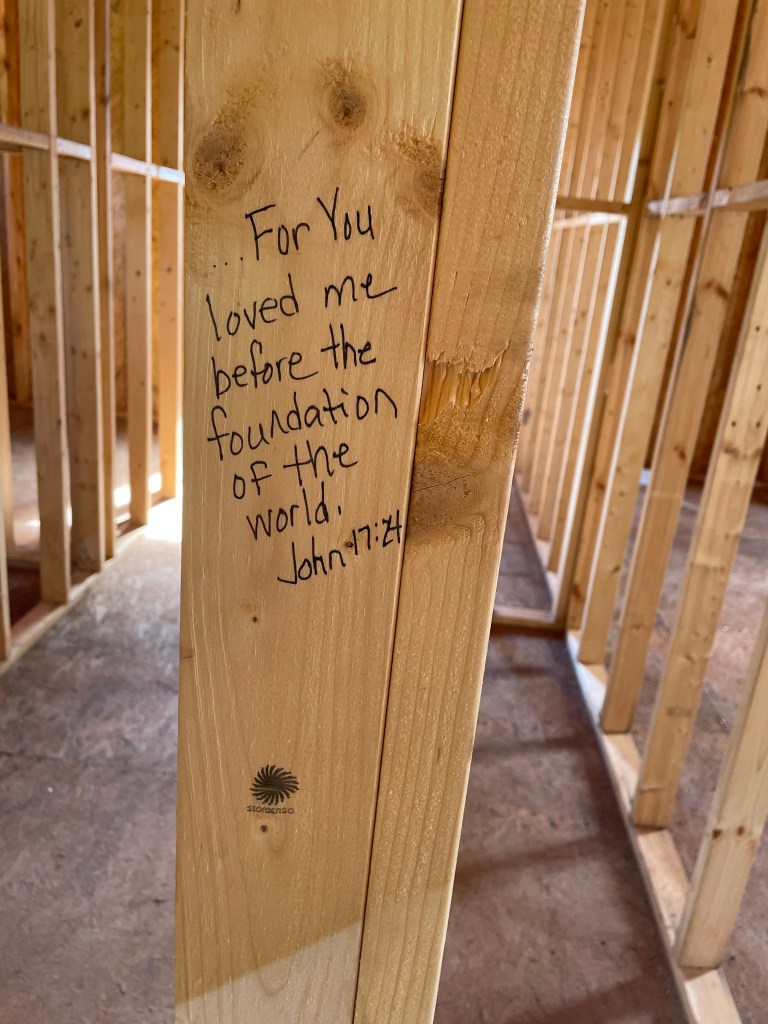 ...For You
loved me
before the
foundation
of the
world.
John 17:24
storaenso